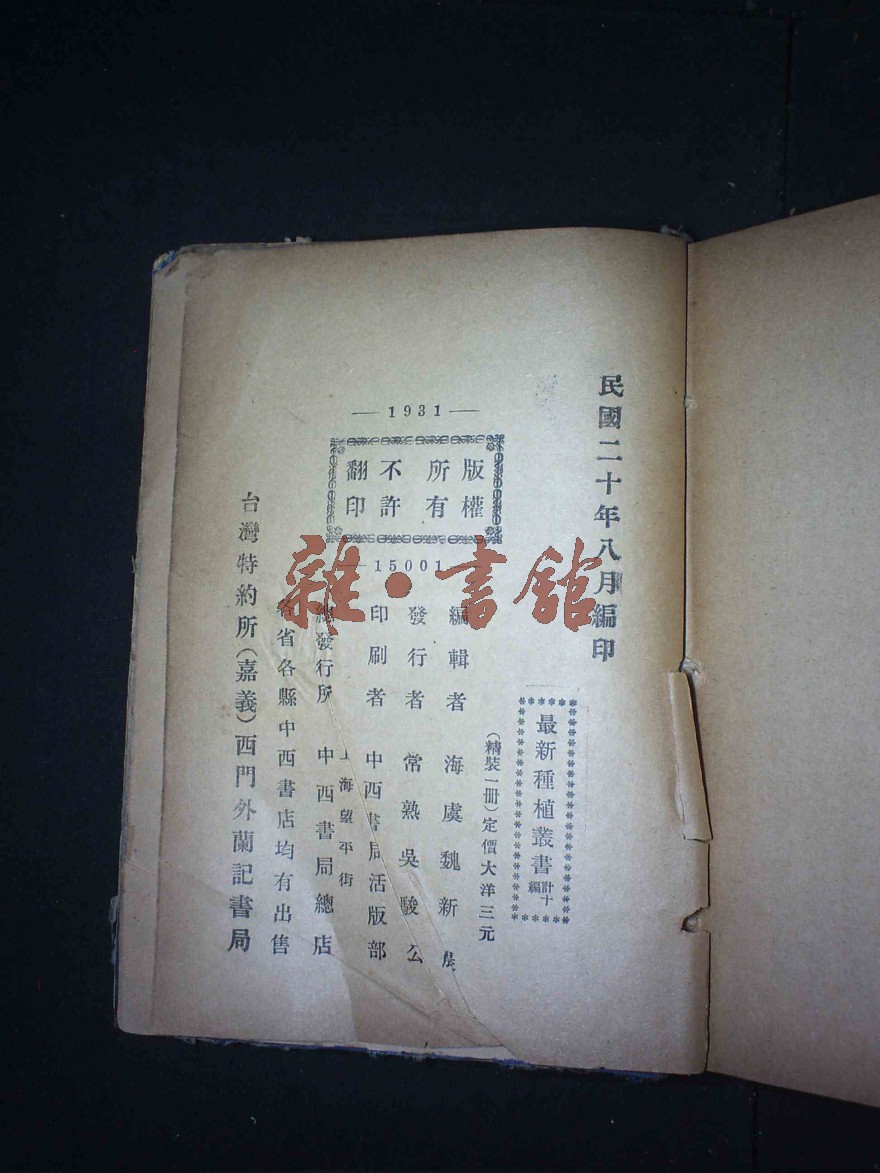 民國二十年八月編印
最新種植叢書 計十編
(精裝一册)定價大洋三元
—1931—
版權
所有
不許
翻印
—15001
編輯者 海虞魏新
發行者 常熟吳駿公
印刷者 中西書局活版部
上海望平街
總發行所 中西書局總店
各省各縣中西書店均有出售
台灣特約所(嘉義)西門外蘭記書局
雜·書館